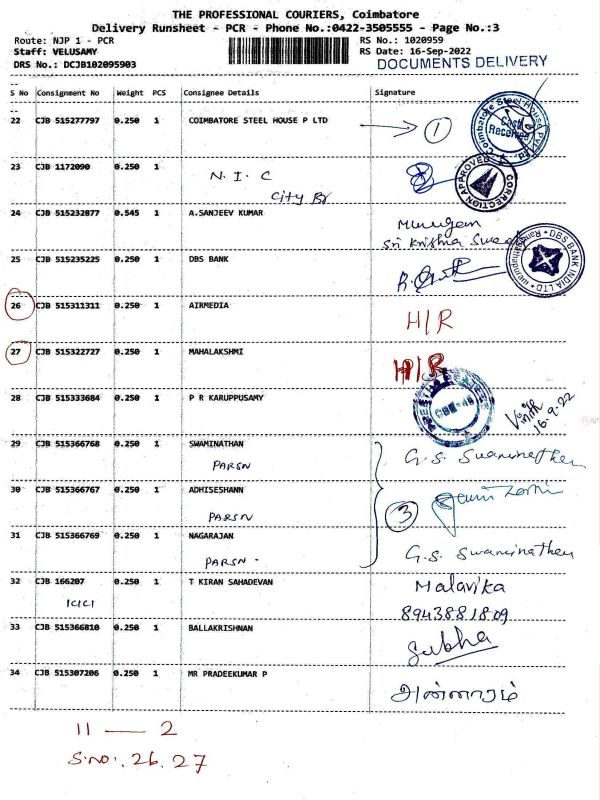 THE PROFESSIONAL COURIERS, Coimbatore
Delivery Runsheet - PCR - Phone No.:0422-3505555 - Page No.:3
Route: NJP 1 - PCR RS No.: 1020959
Staff: VELUSAMY RS Date: 16-Sep-2022
DRS No.: DCJB102095903 DOCUMENTS DELIVERY
S No Consignment No Weight PCS Consignee Details Signature
22 CJB 515277797 0.250 1 COIMBATORE STEEL HOUSE P LTD 1
Coimbatore Steel House Pvt. Ltd.
Cash Received
23 CJB 1172090 0.250 1
N.I.C
City Br
CORRECTION APPROVED
24 CJB 515232877 0.545 1 A.SANJEEV KUMAR Murugan
Sri Krishna
25 CJB 515235225 0.250 1 DBS BANK
DBS BANK INDIA LTD
26 CJB 515311311 0.250 1 AIRMEDIA H/R
27 CJB 515322727 0.250 1 MAHALAKSHMI H/R
28 CJB 515333684 0.250 1 P R KARUPPUSAMY
16.9.22
29 CJB 515366768 0.250 1 SWAMINATHAN G.S. Swaminathen
PARSN
30 CJB 515366767 0.250 1 ADHISESHANN 3
PARSN
31 CJB 515366769 0.250 1 NAGARAJAN G.S. Swaminathen
PARSN -
32 CJB 166207 0.250 1 T KIRAN SAHADEVAN Malavika
ICICI 8943881809
33 CJB 515366810 0.250 1 BALLAKRISHNAN Subha
34 CJB 515307206 0.250 1 MR PRADEEKUMAR P
11 — 2
S.NO:. 26.27